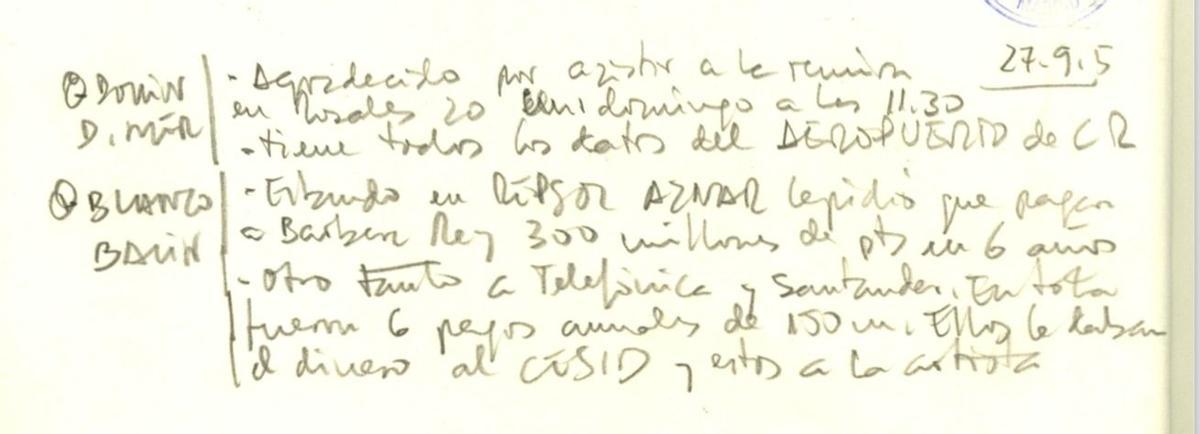 27.9.5
DOMIN
D. MÉR
- Agradecido por asistir a la reunión
en Rosales 20 domingo a las 11.30
- tiene todos los datos del AEROPUERTO de CR
BLANCO
BALIN
- Estando en REPSOL AZNAR le pidió que pagara
a Barbara Rey 300 millones de pts en 6 años
- Otro tanto a Telefónica y Santander. En total
fueron 6 pagos anuales de 150 m. Ellos le daban
el dinero al CESID y estos a la artista